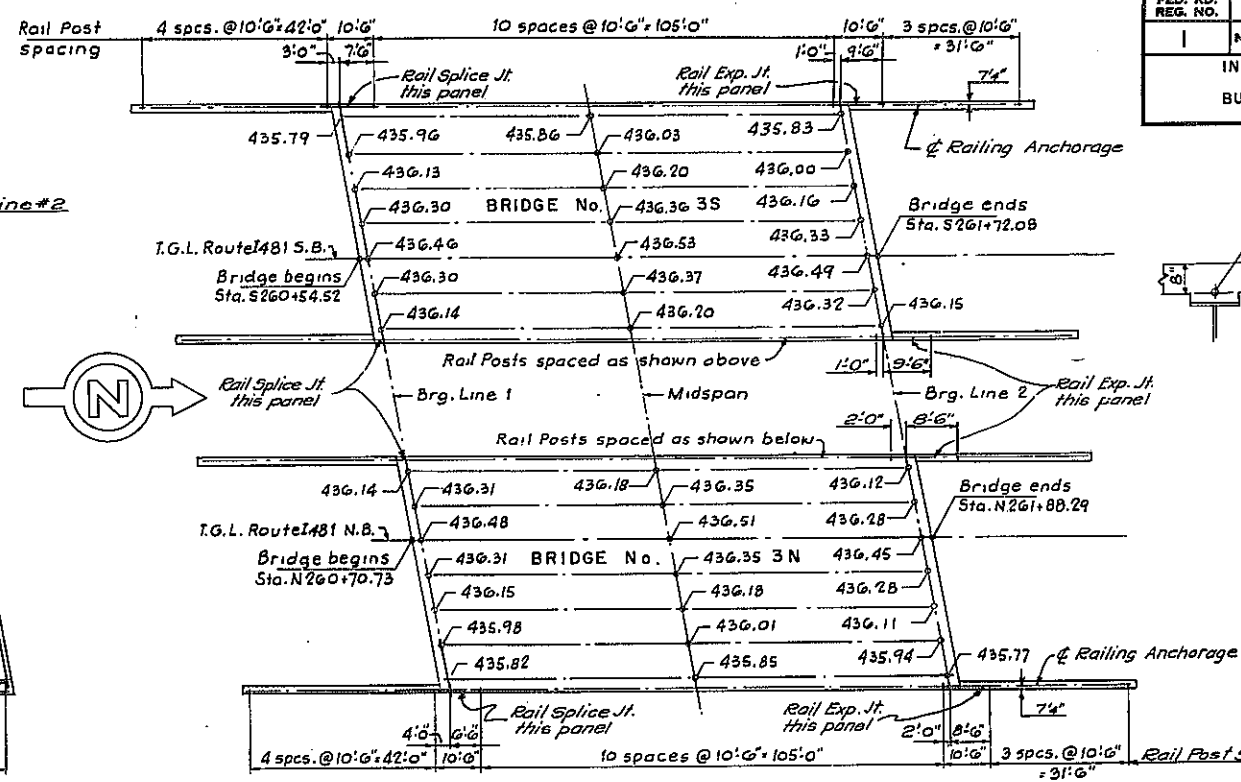 Rail Post
spacing
4 spcs.@10'-6"=42'-0"
10'-6"
10 spaces @10'-6"=105'-0"
10'-6"
3 spcs.@10'-6"
=31'-6"
3'-0"
7'-6"
1'-0"
9'-6"
REG. NO.
1
IN
BU
Rail Splice Jt.
this panel
Rail Exp. Jt.
this panel
7¼"
℄ Railing Anchorage
435.79
435.96
435.86
436.03
435.83
436.13
436.20
436.00
436.30
BRIDGE No. 3S
436.36
436.16
436.33
Bridge ends
Sta. S261+72.08
ine #2
T.G.L. Route I481 S.B.
436.46
436.53
436.49
Bridge begins
Sta. S260+54.52
436.30
436.37
436.32
436.15
8"
436.14
436.20
Rail Posts spaced as shown above
1'-0"
9'-6"
N
Rail Splice Jt.
this panel
Brg. Line 1
Midspan
Brg. Line 2
Rail Exp. Jt.
this panel
Rail Posts spaced as shown below
2'-0"
8'-6"
436.14
436.31
436.18
436.35
436.12
436.28
Bridge ends
Sta. N261+88.29
T.G.L. Route I481 N.B.
436.48
436.51
436.45
Bridge begins
Sta. N260+70.73
436.31
BRIDGE No. 3N
436.35
436.28
436.15
436.18
436.11
435.98
436.01
435.94
435.82
435.85
435.77
℄ Railing Anchorage
Rail Splice Jt.
this panel
Rail Exp. Jt.
this panel
7¼"
4'-0"
6'-6"
2'-0"
8'-6"
4 spcs.@10'-6"=42'-0"
10'-6"
10 spaces @10'-6"=105'-0"
10'-6"
3 spcs.@10'-6"
=31'-6"
Rail Post S